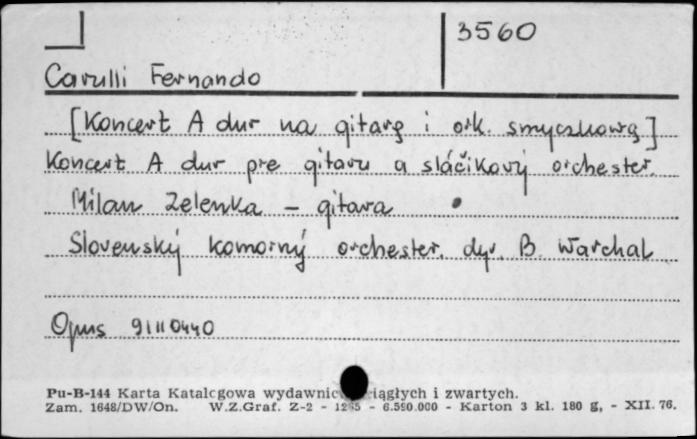 3560
Carulli Fernando
[Koncert A dur na gitarę i ork. smyczkową]
Koncert A dur pre gitaru a sláčikový orchester.
Milan Zelenka – gitara
Slovenský komorný orchester. dyr. B. Warchal
Opus 91110440
Pu-B-144 Karta Katalogowa wydawnic ciągłych i zwartych.
Zam. 1648/DW/On. W.Z.Graf. Z-2 - 1265 - 6.590.000 - Karton 3 kl. 180 g, - XII. 76.